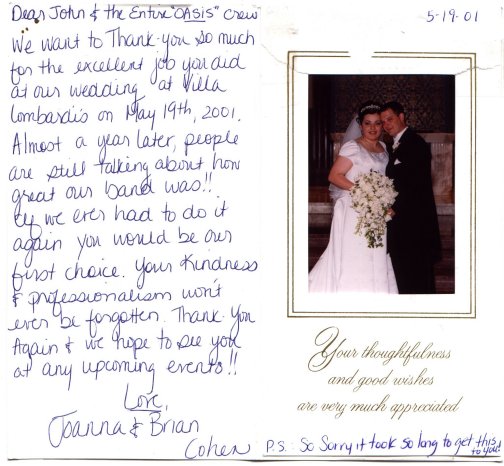 Dear John & the Entire "OASIS" crew
We want to Thank-you so much
for the excellent job you did
at our wedding at Villa
Lombardi's on May 19th, 2001.
Almost a year later, people
are still talking about how
great our band was!!
If we ever had to do it
again you would be our
first choice. Your Kindness
& professionalism won't
ever be forgotten. Thank-You
Again & we hope to see you
at any upcoming events!!
Love,
Joanna & Brian
Cohen
5-19-01
Your thoughtfulness
and good wishes
are very much appreciated
P.S. So Sorry it took so long to get this
to you!